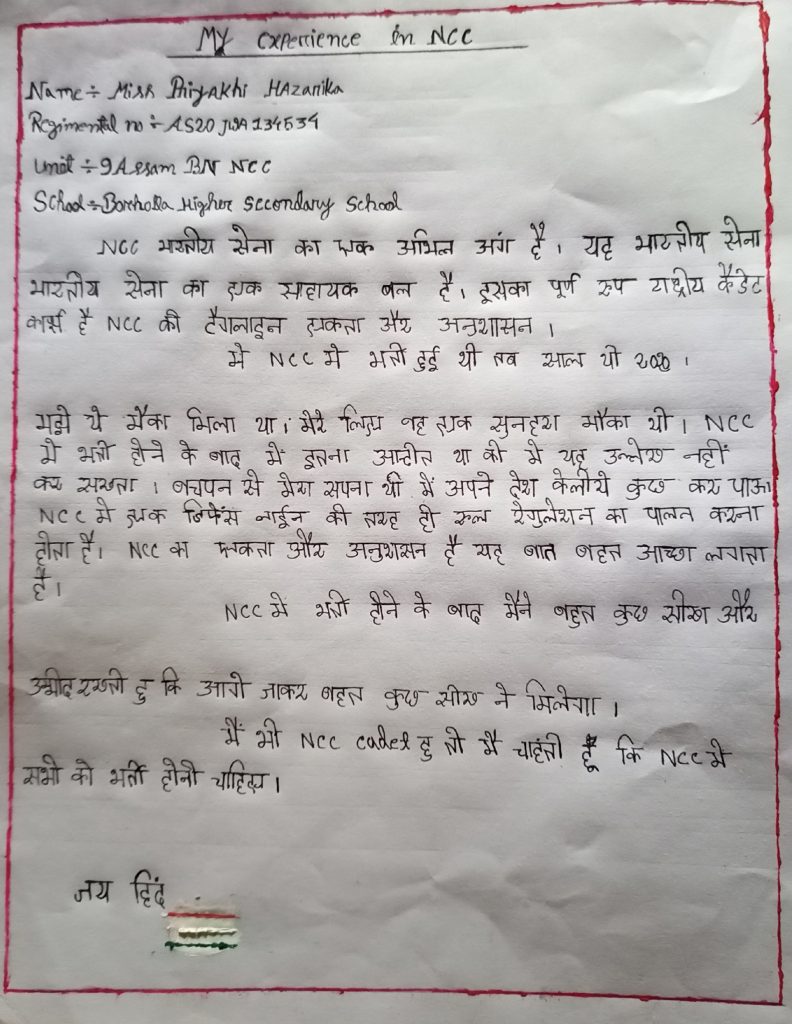 My experience in NCC
Name ÷ Miss Priyakhi Hazarika
Regimental no ÷ AS20JWA134534
Unit ÷ 9 Assam BN NCC
School ÷ Borholla Higher Secondary School
NCC भारतीय सेना का एक अभिन अंग है। यह भारतीय सेना
भारतीय सेना का एक साहायक बल है। इसका पूर्ण रुप राष्ट्रीय कैडेट
कार्प्स है NCC की टैगलाइन एकता और अनुशासन।
मे NCC मे भर्ती हुई थी तब साल थी 2020।
मुझे ये मौका मिला था। मेरे लिए वह एक सुनहरा मौका थी। NCC
मे भर्ती होने के बाद में इतना था की मे यह उल्लेख नहीं
कर सखता। बचपन से मेरा सपना थी मैं अपने देश केलीये कुछ कर पाऊ।
NCC मे एक डिफेंस लाईन की तरह ही रुल रेगुलेशन का पालन करना
होता है। NCC का एकता और अनुशासन है यह बात बहत आच्छा लगाता
है।
NCC मे भर्ती होने के बाद मैने बहुत कुछ सीखा और
उम्मीद रखती हु कि आगे जाकर बहत कुछ सीख ने मिलेगा।
मैं भी NCC cadet हु तो मै चाहंती हूँ कि NCC मे
सभी को भर्ती होनी चाहिए।
जय हिंद